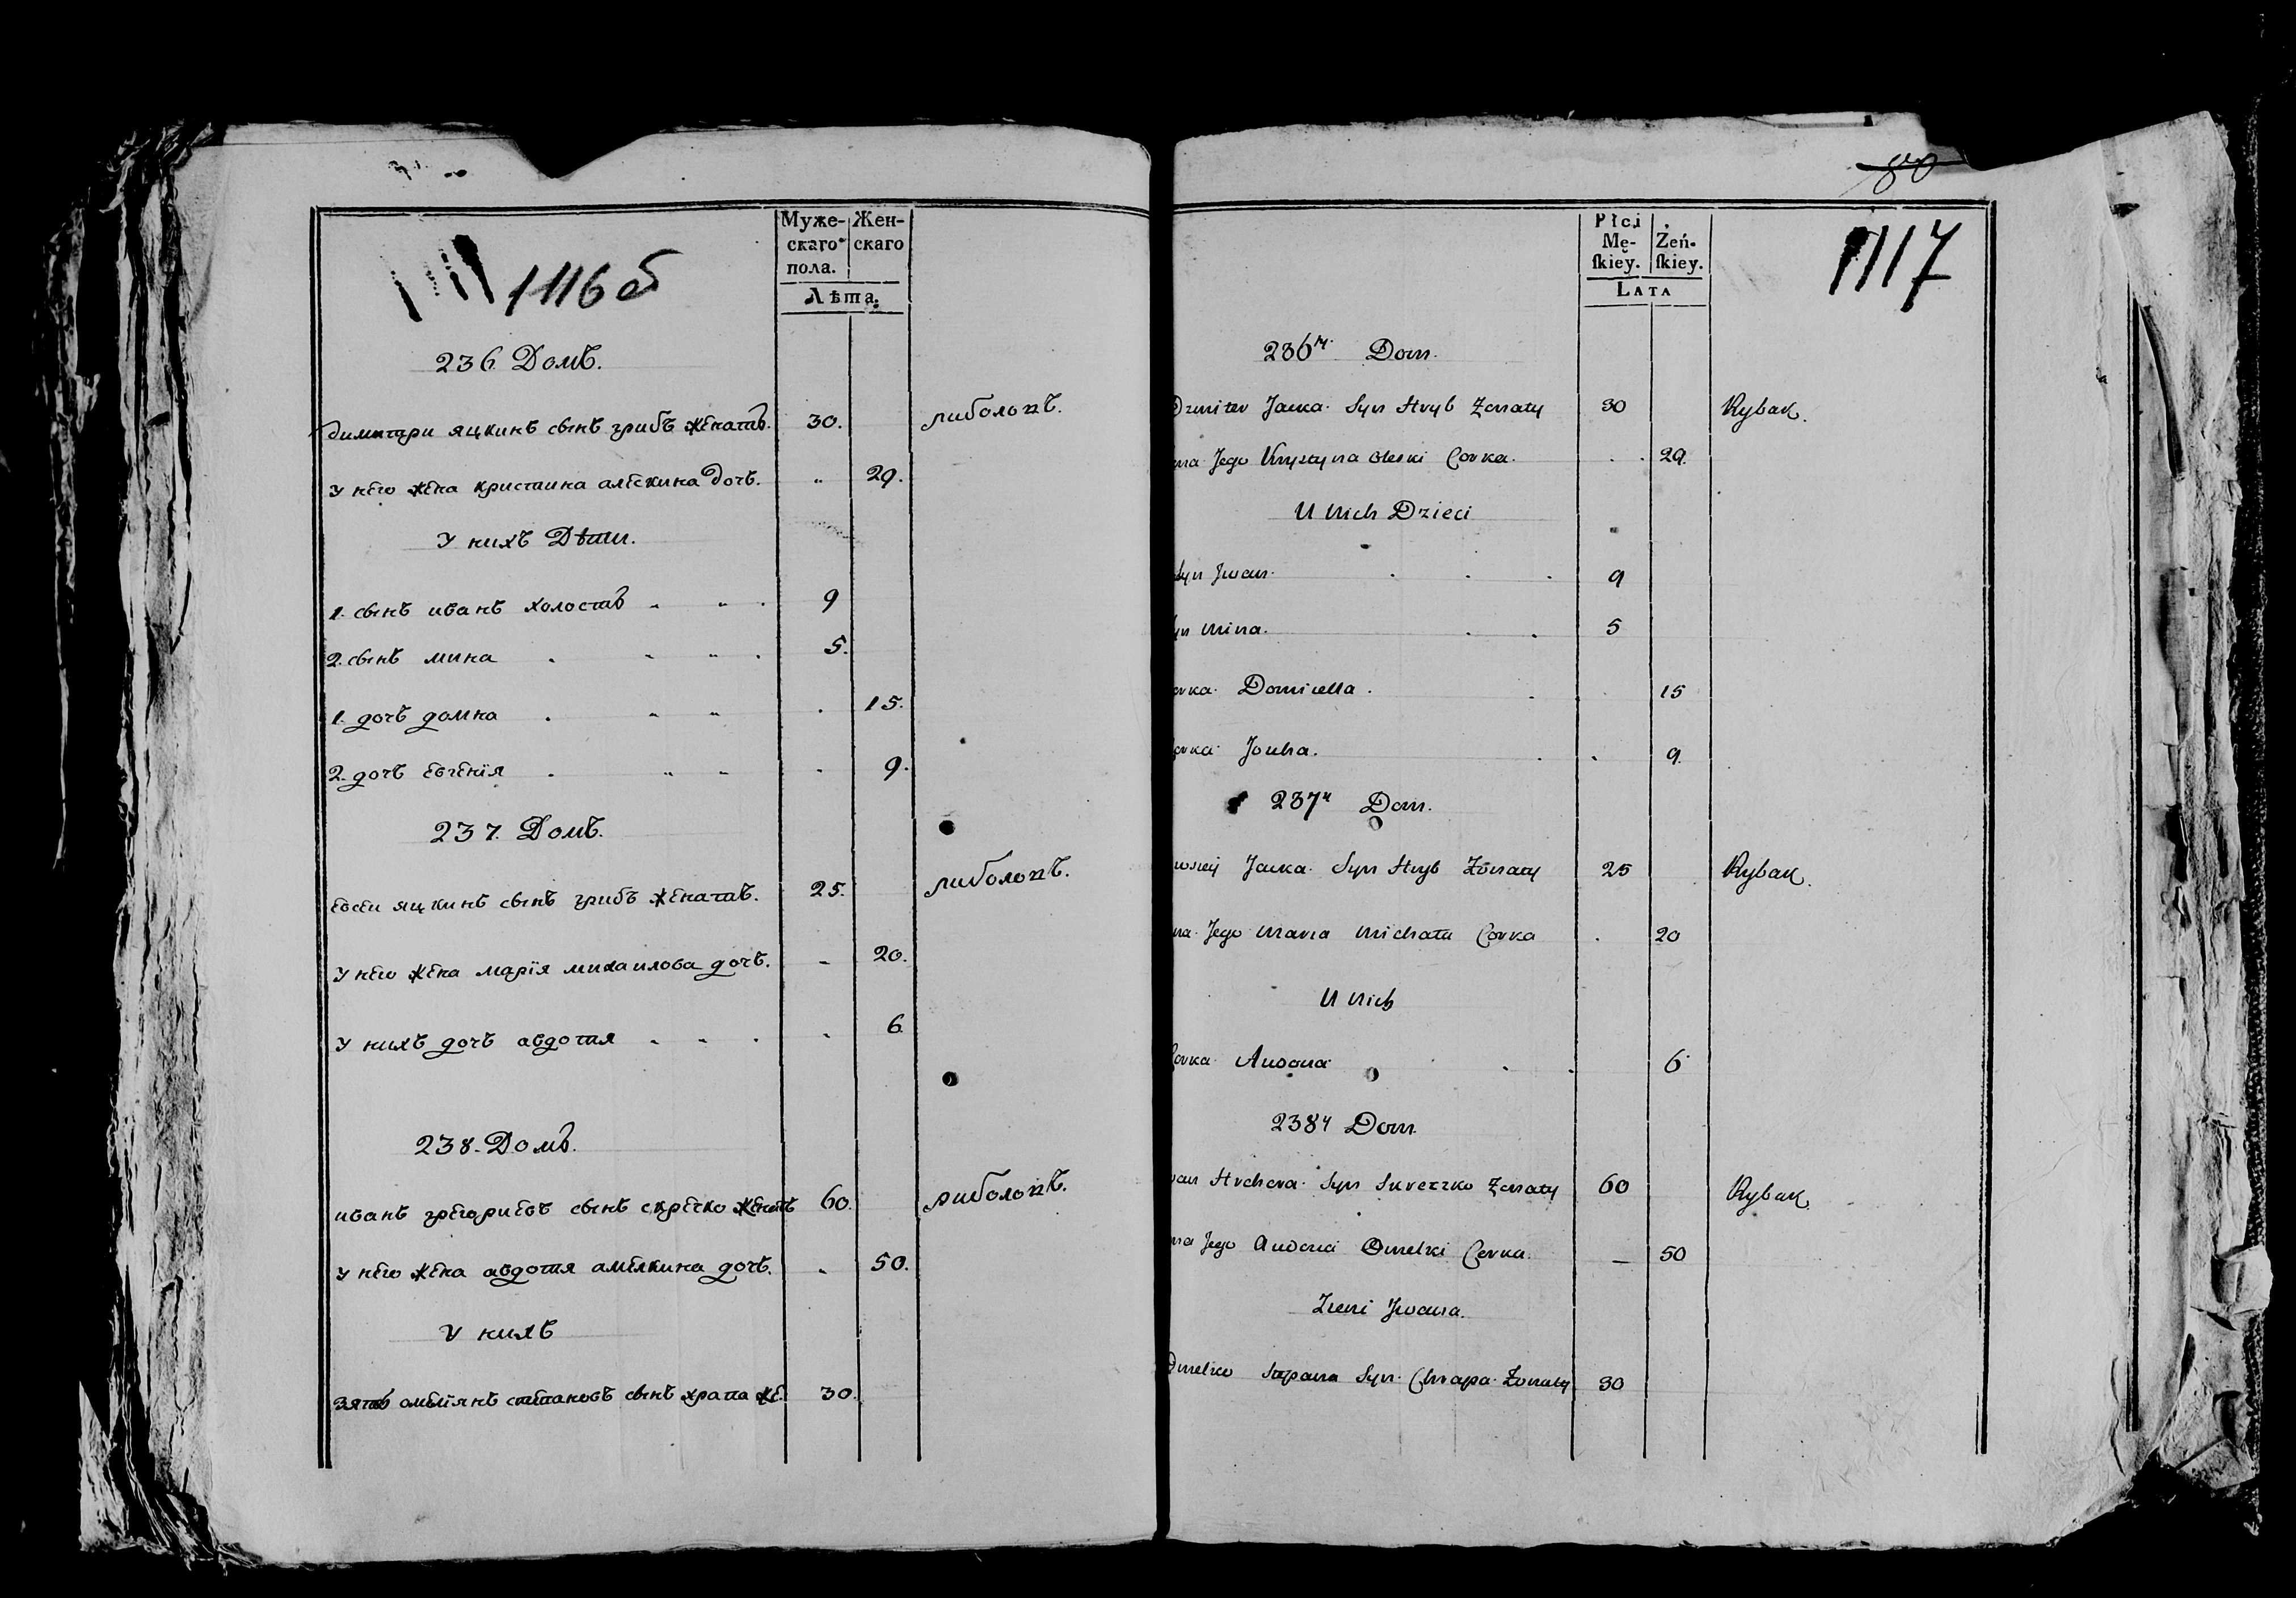 1116 об
Муже- Жен-
скаго скаго
пола.
Лѣта.
236 Домъ.
димитри яцкинъ сынъ грибъ женатъ. 30. риболовъ.
у него жена кристина алескина дочъ. " 29.
У нихъ Дѣти.
1. сынъ иванъ холостъ " " . 9
2. сынъ мина . " " . 5.
1. дочъ домна . " " . 15.
2. дочъ евгенія . " " . 9.
237. Домъ.
евсеи яцкинъ сынъ грибъ женатъ. 25. риболовъ.
у него жена марія михаилова дочъ. - 20.
у нихъ дочъ авдотя " " . " 6
238. Домъ.
иванъ грегориевъ сынъ скречко женатъ 60. риболовъ.
у него жена авдотя амелкина дочъ. " 50.
У нихъ
зять омелянъ степановъ сынъ храпа же. 30.
80
1117
Płci
Mę- Żeń-
ſkiey. ſkiey.
LATA
236ty Dom.
Dmiter Jacka Syn Hryb Żonaty 30 Rybak.
na Jego Krystyna Oleski Corka. . . 29.
U Nich Dzieci
Syn Jwan. . . . 9
yn Mina. . . 5
orka Domicella . . . 15
orka Jouha. . . 9
237y Dom.
wsiey Jacka Syn Hryb Żonaty 25 Rybak.
na Jego Maria Michała Corka . 20
U Nich
orka Awdocia . . 6
238y Dom
wan Hrehora Syn Skreczko Żonaty 60 Rybak
na Jego Audocia Omelki Corka. — 50
Zieńc Jwana.
Omelko Stepana Syn Chrapa Żonaty 30